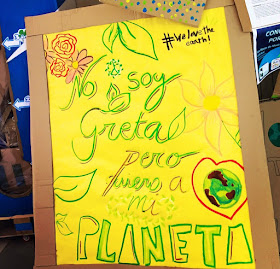 #WeLovethe
earth!
No soy
Greta
pero
quiero a
mi
PLANETA